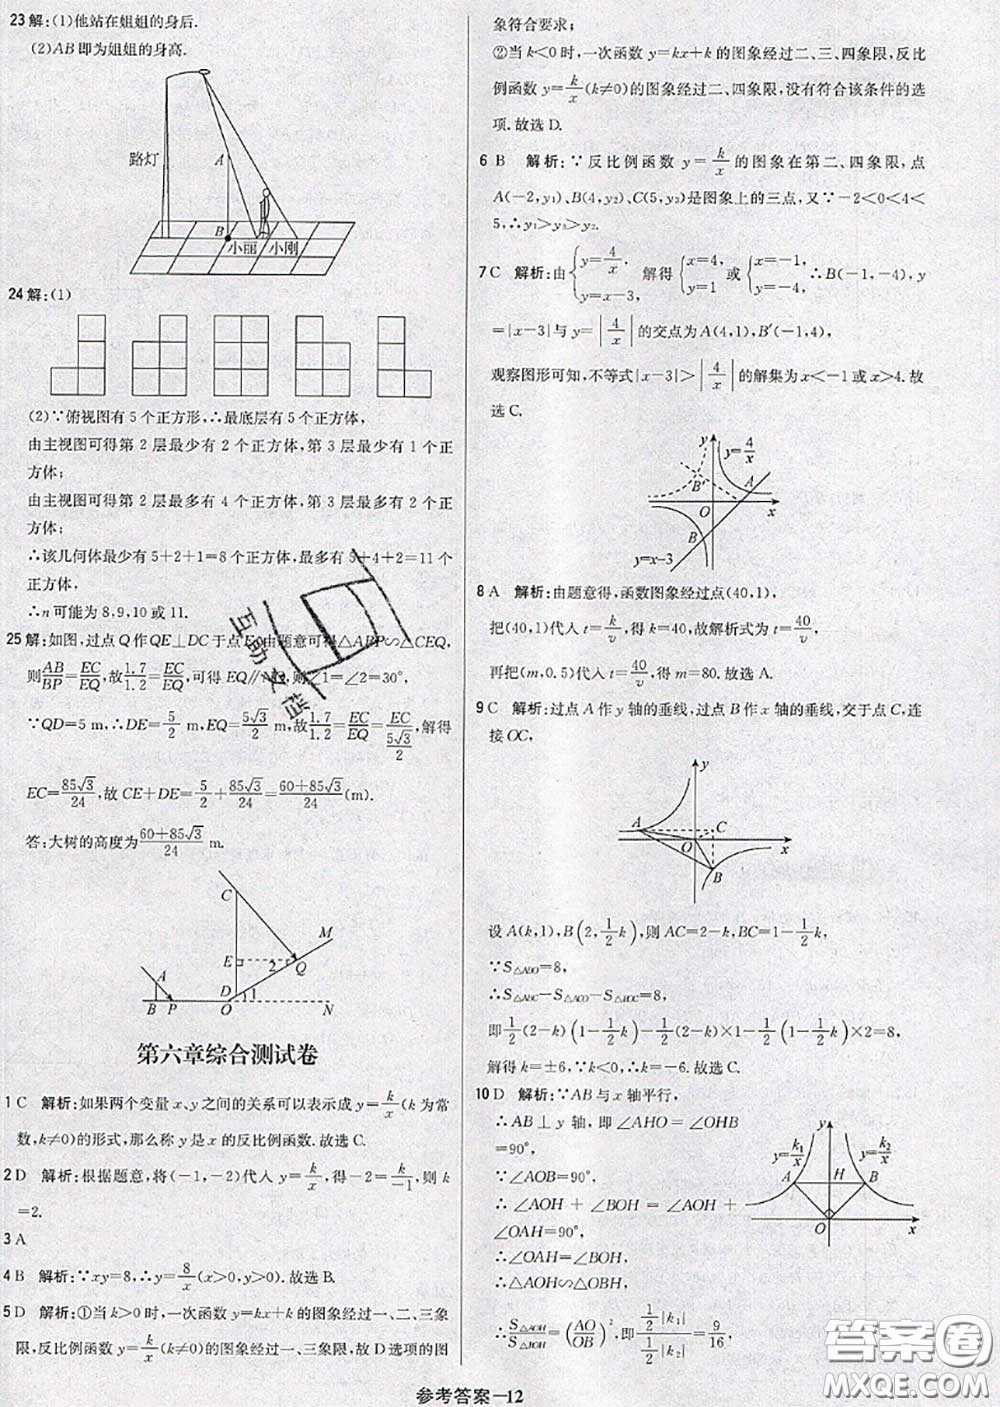 23 解:(1)他站在姐姐的身后.
(2)AB即为姐姐的身高.
路灯
A
B
小丽
小刚
24 解:(1)
(2)∵俯视图有5个正方形,∴最底层有5个正方体,
由主视图可得第2层最少有2个正方体,第3层最少有1个正
方体;
由主视图可得第2层最多有4个正方体,第3层最多有2个正
方体;
∴该几何体最少有5+2+1=8个正方体,最多有5+4+2=11个
正方体,
∴n可能为8,9,10或11.
25 解:如图,过点Q作QE⊥DC于点E,由题意可得△ABP∽△CEQ,
则AB/BP=EC/EQ,故1.7/1.2=EC/EQ,可得EQ∥NO,则∠1=∠2=30°,
∵QD=5 m,∴DE=5/2 m,EQ=5√3/2 m,故1.7/1.2=EC/EQ=EC/(5√3/2),解得
EC=85√3/24,故CE+DE=5/2+85√3/24=(60+85√3)/24(m).
答:大树的高度为(60+85√3)/24 m.
C
M
E
2
Q
A
D
1
B P
O
N
第六章综合测试卷
1 C 解析:如果两个变量x、y之间的关系可以表示成y=k/x(k为常
数,k≠0)的形式,那么称y是x的反比例函数.故选C.
2 D 解析:根据题意,将(-1,-2)代人y=k/x,得-2=k/-1,则k
=2.
3 A
4 B 解析:∵xy=8,∴y=8/x(x>0,y>0).故选B.
5 D 解析:①当k>0时,一次函数y=kx+k的图象经过一、二、三象
限,反比例函数y=k/x(k≠0)的图象经过一、三象限,故D选项的图
象符合要求;
②当k<0时,一次函数y=kx+k的图象经过二、三、四象限,反比
例函数y=k/x(k≠0)的图象经过二、四象限,没有符合该条件的选
项.故选D.
6 B 解析:∵反比例函数y=k/x的图象在第二、四象限,点
A(-2,y₁)、B(4,y₂)、C(5,y₃)是图象上的三点,又∵-2<0<4<
5,∴y₁>y₃>y₂.
7 C 解析:由{y=4/x, y=x-3, 解得{x=4, y=1 或{x=-1, y=-4 ∴B(-1,-4),y
=|x-3|与y=|4/x|的交点为A(4,1),B′(-1,4),
观察图形可知,不等式|x-3|>|4/x|的解集为x<-1或x>4.故
选C.
y
y=4/x
B′
A
O
x
B
y=x-3
8 A 解析:由题意得,函数图象经过点(40,1),
把(40,1)代人t=k/v,得k=40,故解析式为t=40/v,
再把(m,0.5)代人t=40/v,得m=80.故选A.
9 C 解析:过点A作y轴的垂线,过点B作x轴的垂线,交于点C,连
接OC,
y
A
C
O
x
B
设A(k,1),B(2,1/2k),则AC=2-k,BC=1-1/2k,
∵S△ABO=8,
∴S△ABC-S△ACO-S△BOC=8,
即1/2(2-k)(1-1/2k)-1/2(2-k)×1-1/2(1-1/2k)×2=8,
解得k=±6,∵k<0,∴k=-6.故选C.
10 D 解析:∵AB与x轴平行,
∴AB⊥y轴,即∠AHO=∠OHB
=90°,
∵∠AOB=90°,
∴∠AOH+∠BOH=∠AOH+
∠OAH=90°,
∴∠OAH=∠BOH,
∴△AOH∽△OBH,
∴S△AOH/S△BOH=(AO/OB)²,即(1/2|k₁|)/(1/2|k₂|)=9/16,
y
y=k₁/x
y=k₂/x
A
H
B
O
x
互助文档
答案圈
MXQE.COM
参考答案—12